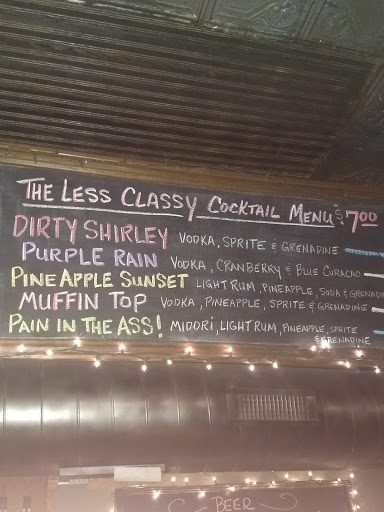 THE LESS CLASSY COCKTAIL MENU $7.00
DIRTY SHIRLEY VODKA, SPRITE & GRENADINE
PURPLE RAIN VODKA, CRANBERRY & BLUE CURACAO
PINEAPPLE SUNSET LIGHT RUM, PINEAPPLE, SODA & GRENAD
MUFFIN TOP VODKA, PINEAPPLE, SPRITE & GRENADINE
PAIN IN THE ASS! MIDORI, LIGHT RUM, PINEAPPLE, SPRITE
& GRENADINE
BEER